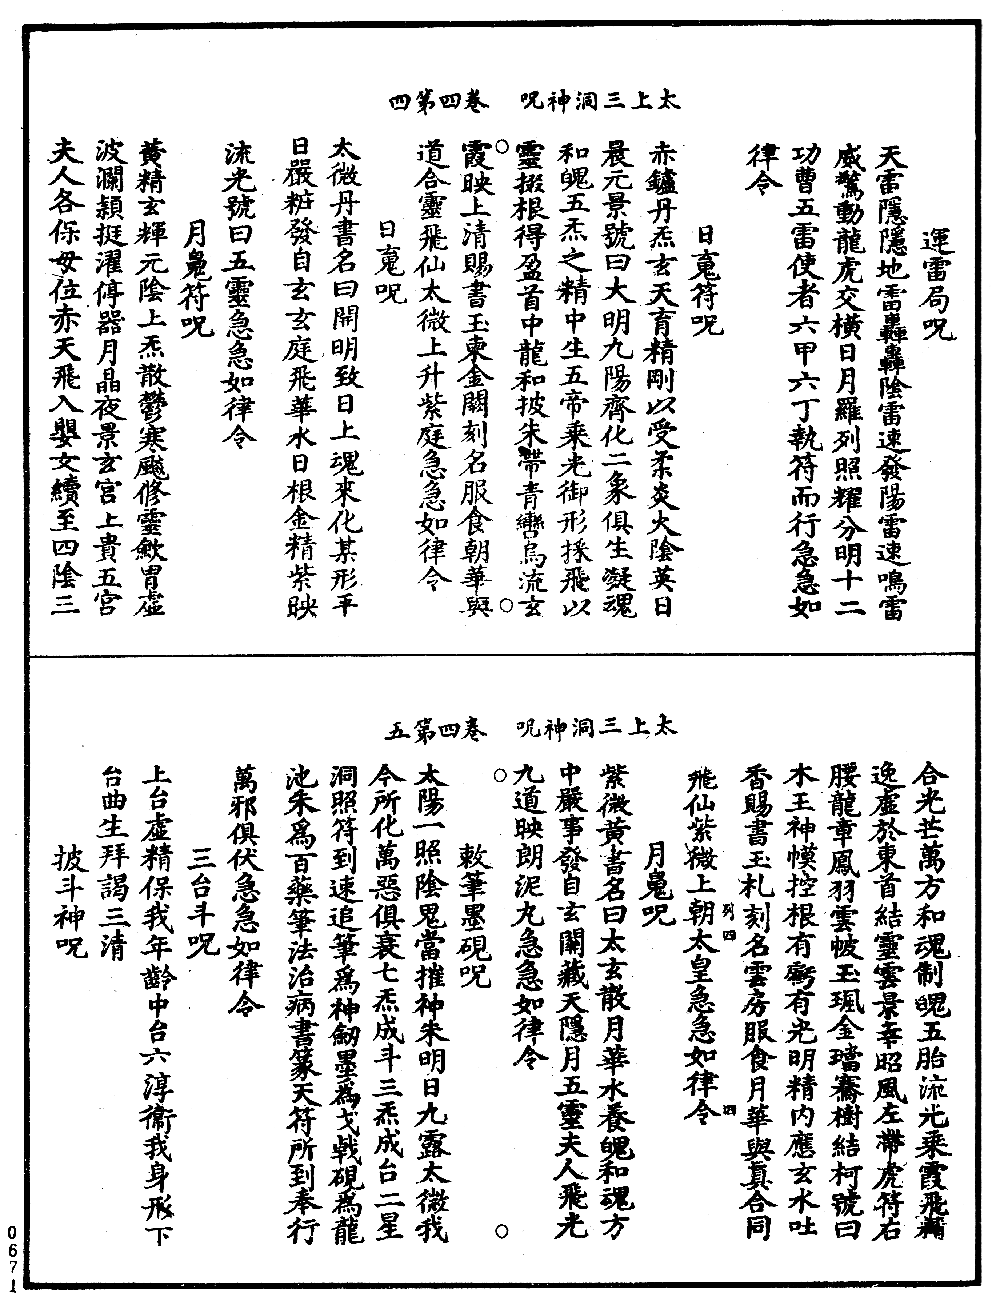 太上三洞神呪　卷四第四
運雷局呪
天雷隱隱地雷轟轟陰雷速發陽雷速鳴雷
威驚動龍虎交橫日月羅列照耀分明十二
功曹五雷使者六甲六丁執符而行急急如
律令
日䰟符呪
赤鑪丹炁玄天育精剛以受柔炎火陰英日
晨元景號曰大明九陽齊化二象俱生凝魂
和魄五炁之精中生五帝乘光御形採飛以
靈掇根得盈首中龍和披朱帶青轡烏流玄
霞映上清賜書玉柬金闕刻名服食朝華與
道合靈飛仙太微上升紫庭急急如律令
日䰟呪
太微丹書名曰開明致日上魂來化某形平
日嚴粧發自玄玄庭飛華水日根金精紫映
流光號曰五靈急急如律令
月䰟符呪
黃精玄輝元陰上炁散鬱寒飈修靈歛胃虛
波瀾潁挺濯停器月晶夜景玄宮上貴五宮
夫人各保母位赤天飛入嬰女續至四陰三
太上三洞神呪　卷四第五
合光芒萬方和魂制魄五胎流光乘霞飛輔
逸虛於東首結靈雲景幸昭風左帶虎符右
腰龍章鳳羽雲帔玉珮金璫騫樹結柯號曰
木王神幞控根有虧有光明精內應玄水吐
香賜書玉札刻名雲房服食月華與真合同
飛仙紫微上朝太皇急急如律令　列四　四
月䰟呪
紫微黃書名曰太玄散月華水養魄和魂方
中嚴事發自玄關藏天隱月五靈夫人飛光
九道映朗泥丸急急如律令
敕筆墨硯呪
太陽一照陰鬼當摧神朱明日九露太微我
今所化萬惡俱衰七炁成斗三炁成台二星
洞照符到速追筆爲神劒墨爲戈戟硯爲龍
池朱爲百藥筆法治病書篆天符所到奉行
萬邪俱伏急急如律令
三台斗呪
上台虛精保我年齡中台六淳衞我身形下
台曲生拜謁三清
披斗神呪
0671